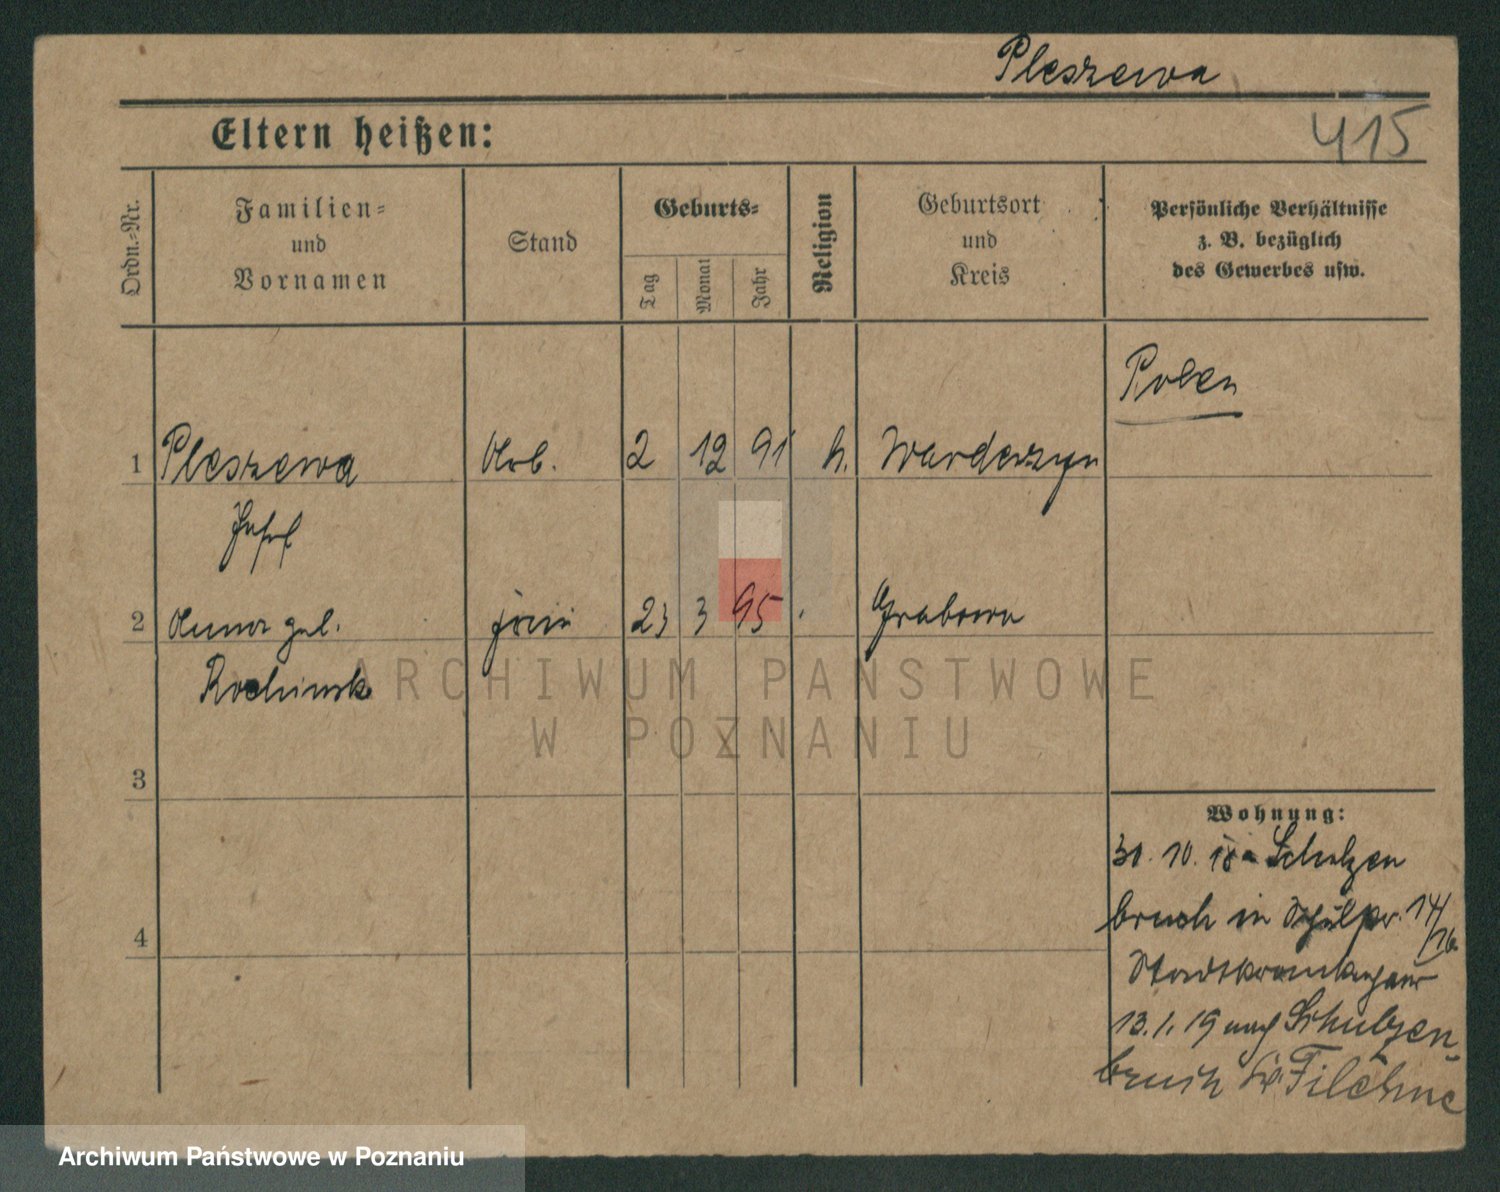 Pleszewa
415
Eltern heißen:
Ordn.-Nr.
Familien-
und
Vornamen
Stand
Geburts-
Tag
Monat
Jahr
Religion
Geburtsort
und
Kreis
Persönliche Verhältnisse
z. B. bezüglich
des Gewerbes usw.
Polen
1 Pleszewa Arb. 2 12 91 k.
Josef
2 Anna geb. 23 3 95 Grabowo
ARCHIWUM PAŃSTWOWE
W POZNANIU
3
Wohnung:
30. 10. 18 Schulzen
bruch in 14/
4
Stadtkrankenhaus
13. 1. 19 nach Schulzen-
bruch Filehne
Archiwum Państwowe w Poznaniu